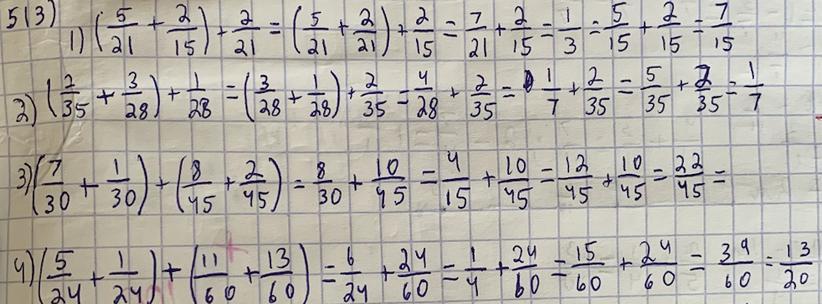 513) 1) (5/21 + 2/15) + 2/21 = (5/21 + 2/21) + 2/15 = 7/21 + 2/15 = 1/3 = 5/15 + 2/15 = 7/15
2) (2/35 + 3/28) + 1/28 = (3/28 + 1/28) + 2/35 = 4/28 + 2/35 = 1/7 + 2/35 = 5/35 + 2/35 = 1/7
3) (7/30 + 1/30) + (8/45 + 2/45) = 8/30 + 10/45 = 4/15 + 10/45 = 12/45 + 10/45 = 22/45 =
4) (5/24 + 1/24) + (11/60 + 13/60) = 6/24 + 24/60 = 1/4 + 24/60 = 15/60 + 24/60 = 39/60 = 13/20